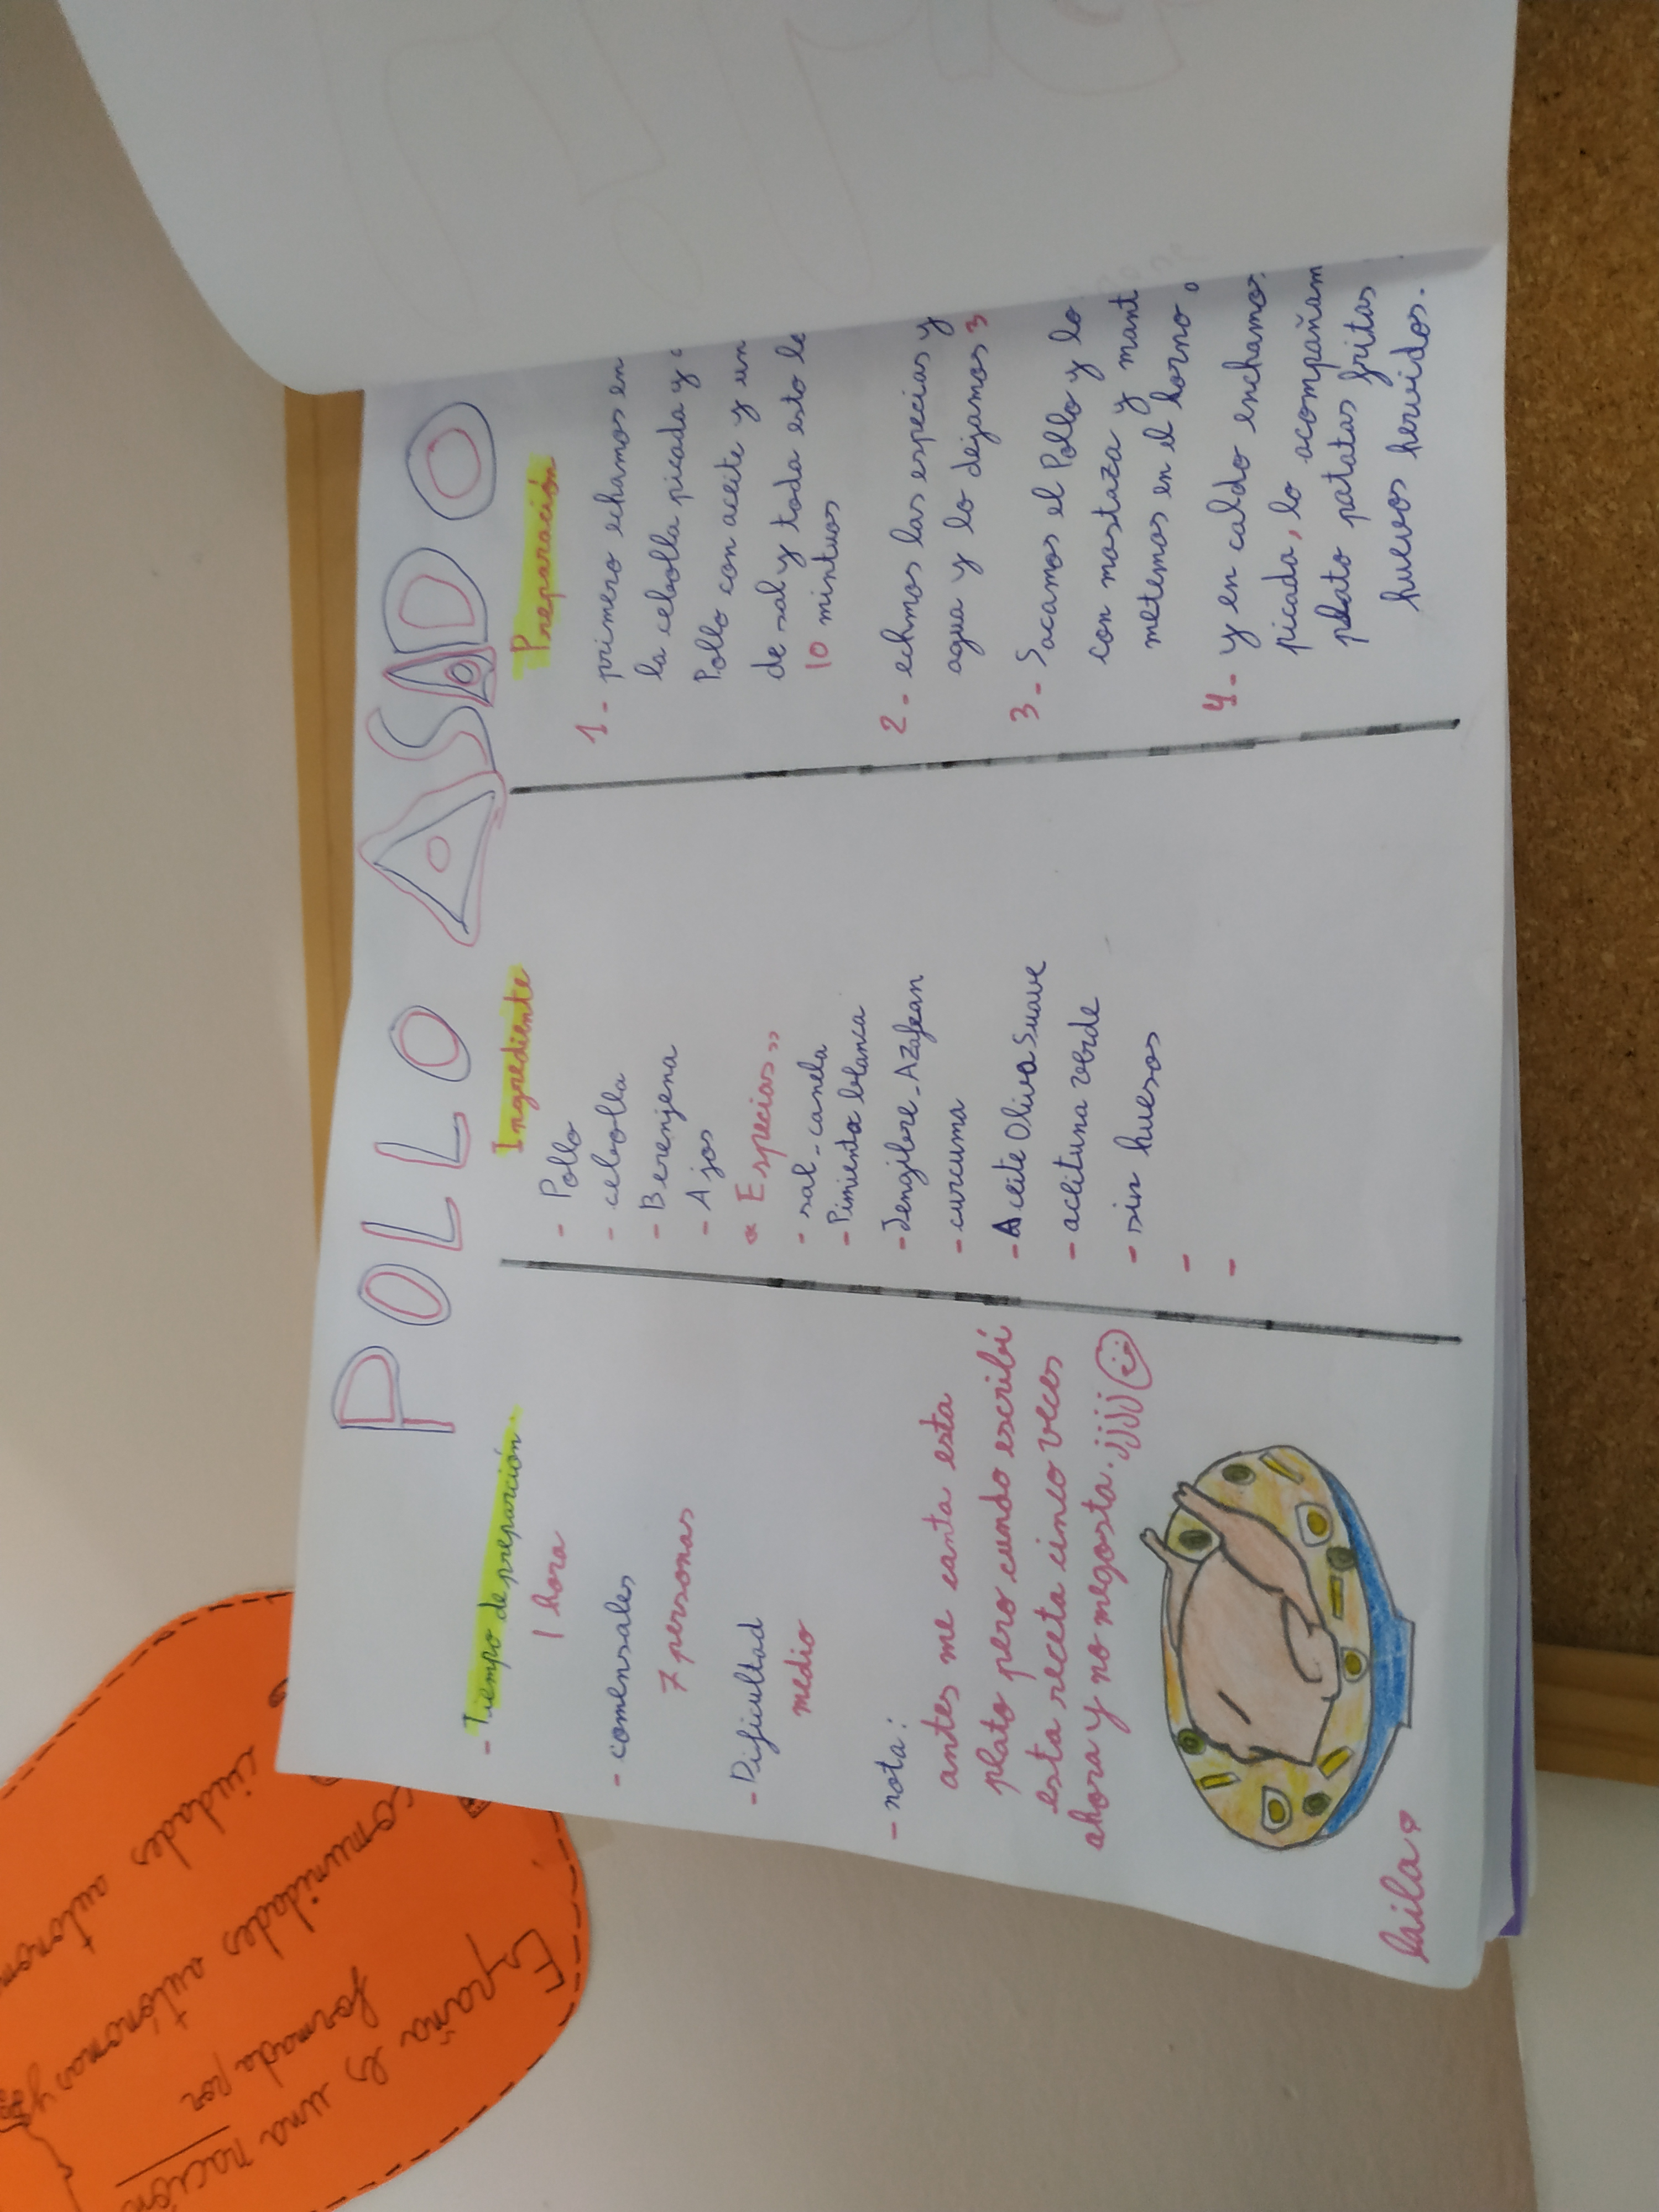 POLLO ASADO
- Tiempo de preparción.
1 hora
- comensales
7 personas
- Dificultad
medio
- nota:
antes me canta esta
plato pero cundo escribí
esta receta cinco veces
ahora y no megosta. jjjj
laila
Ingrediente
- Pollo
- cebolla
- Berenjena
- Ajos
« Especias »
- sal - canela
- Pimienta blanca
- Jengibre - Azafean
- curcuma
- Aceite Oliva Suave
- aceituna verde
- sin huesos
-
-
Preparación
1- primero echamos en
la cebolla picada y
Pollo con aceite y un
de sal y toda esto le
10 mintuos
2- echmos las especias y
agua y lo dejamos 3
3- Sacamos el Pollo y lo
con mostaza y mant
metemos en el horno,
4- y en caldo enchamos
picada, lo acompañam
plato patatas fritas
huevos hervidos.
España es una nación
formada por
comunidades autónomas y
ciudades autonom